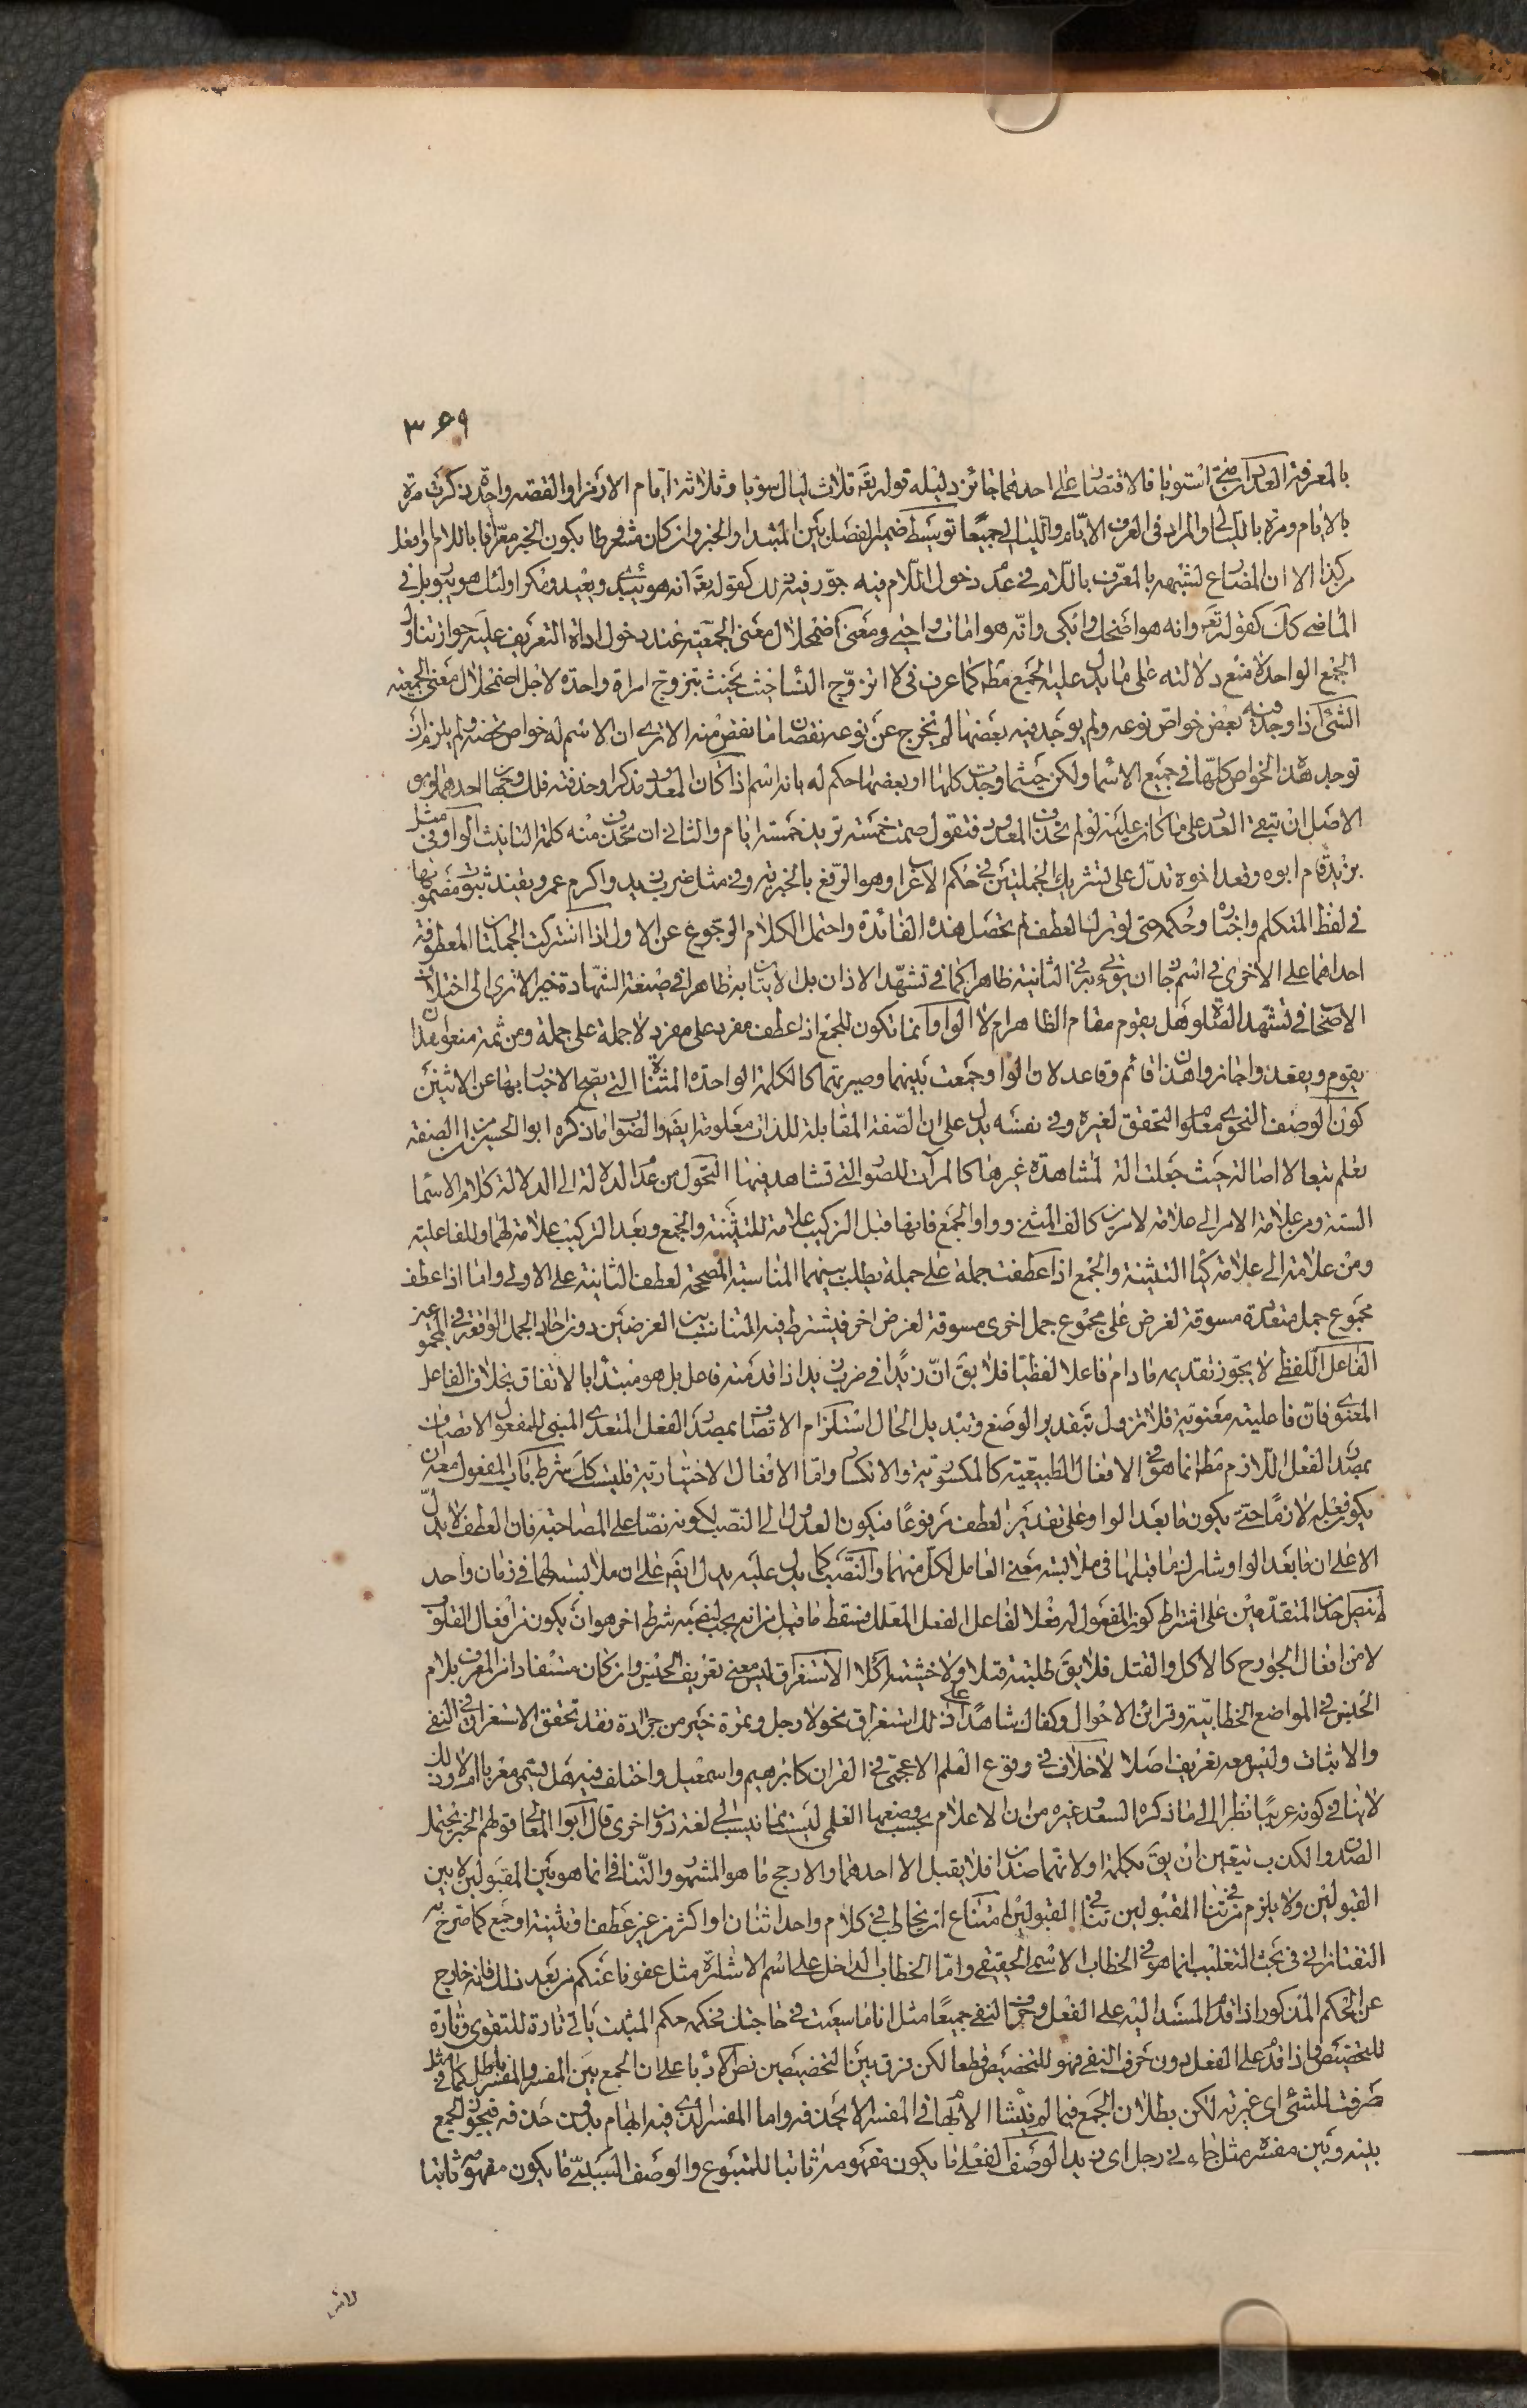 ٣٩٩
بالمعرفة العددان متى استويا فالاقتصار على احدهما جائز دليله قوله تعه ثلاث ليال سويا وثلاثة ايام الا رمزا والقصه واحدة ذكرت مرة
بالايام ومرة بالليالى والمراد فى العرف الايام والليالى جميعا توسط ضمير الفصل بين المبتدا والخبر وان كان مشروطا بكون الخبر معرفا باللام او افعل
من كذا الا ان المضارع لشبهه بالمعرف باللام فى عدم دخول اللام فيه جوز فيه ذلك كقوله تعه انه هو يبدئ ويعيد ومكر اولئك هو يبور بل فى
الماضى كك كقوله تعه وانه هو اضحك وابكى وانه هو امات واحيى ومعنى اضمحلال معنى الجمعية عند دخول اداة التعريف عليه جواز تناول
الجمع الواحد لا منع دلالته على ما يدل عليه الجمع مطه كما عرف فى لا اتزوج النساء حيث يحنث بتزوج امراة واحدة لاجل اضمحلال معنى الجمعيه
الشئ اذا وجد فيه بعض خواص نوعه ولم يوجد فيه بعضها لم يخرج عن نوعه نقصان ما نقص منه الا ترى ان الاسم له خواص تخصه ولم يلزم ان
توجد هذه الخواص كلها فى جميع الاسماء ولكن حيثما وجدت كلها او بعضها حكم له بانه اسم اذا كان المعدود مذكرا وحذفته فلك وجهان احدهما وهو
الاصل ان تبقى العدد على ما كان عليه لو لم تحذف المعدود فتقول صمت خمسة تريد خمسة ايام والثانى ان تحذف منه كلة التانيث الواو فى مثل
زيد قام ابوه وقعد اخوه تدل على تشريك الجملتين فى حكم الاعراب وهو الرفع بالخبرية وفى مثل ضرب زيد واكرم عمرو يفيد ثبوت مضمونهما
فى لفظ المتكلم واخباره وحكمه حتى لو ترك العطف لم يحصل هذه الفائدة واحتمل الكلام الرجوع عن الاول اذا اشتركت الجملتان المعطوفة
احداهما على الاخرى فى اسم جاز ان يؤتى به فى الثانية ظاهرا كما فى تشهد الاذان بل الاتيان به ظاهرا فى صيغة الشهادة خير الا ترى الى اختلاف
الاصحاب فى تشهد الصلوة هل يقوم مقام الظاهر ام لا الواو انما تكون للجمع اذا عطف مفرد على مفرد لا جملة على جملة ومن ثمة منعوا هذان
يقوم ويقعد واجازوا هذان قائم وقاعد لان الواو جمعت بينهما وصيرتهما كالكلمة الواحدة المثناة التى يصح الاخبار بها عن الاثنين
كون الوصف النحوى معلوم التحقق لغيره وفى نفسه يدل على ان الصفة المقابلة للذات معلومة ايضه والصواب ما ذكره ابو الحسين من ان الصفة
تعلم تبعا لا اصالة حيث جعلت الة لمشاهدة غيرها كالمرآت للصور التى تشاهد فيها التحول من عدم الدلالة الى الدلالة كلام الاسماء
الستة ومن علامة الامر الى علامة لامرين كالف المثنى وواو الجمع فانها قبل التركيب علامة للتثنية والجمع وبعد التركيب علامة لهما وللفاعلية
ومن علامة الى علامة كياء التثنية والجمع اذا عطفت جملة على جملة يطلب بينهما المناسبة المصححة لعطف الثانية على الاولى واما اذا عطف
مجموع جمل متعددة مسوقة لغرض على مجموع جمل اخرى مسوقة لغرض اخر فيشترط فيه التناسب بين الغرضين دون احاد الجمل الواقعة فى المجموعين
الفاعل اللفظى لا يجوز تقديمه ما دام فاعلا لفظيا فلا يقه ان زيدا فى ضرب زيد اذا قدم منه فاعل بل هو مبتدأ بالاتفاق بخلاف الفاعل
المعنوى فان فاعليته معنوية فلا تزول بتقدير الوضع وتبديل الحال استلزام الاتصاف بمصدر الفعل المتعدى المبنى للمفعول الاتصاف
بمصدر الفعل اللازم مطه انما هو فى الافعال الطبيعية كالمكسورية والانكسار واما الافعال الاختيارية فليست كك شرط باب المفعول معه ان
يكون فعله لازما حتى يكون ما بعد الواو على تقدير العطف مرفوعا فيكون العدول الى النصب لكونه نصا على المصاحبة فان العطف لا يدل
الا على ان ما بعد الواو شارك ما قبلها فى ملابسة معنى العامل لكل منهما والنصب كما يدل عليه يدل ايضه على ان ملابسته لهما فى زمان واحد
لم ينص احد من المتقدمين على اشتراط كون المفعول له فعلا لفاعل الفعل المعلل فسقط ما قيل من انه يجب لنصبه شرط اخر هو ان يكون من افعال القلوب
لا من افعال الجوارح كالاكل والقتل فلا يقه طلبته قتلا ولا خشيته اكلا الاستغراق ليس معنى تعريف الجنس وان كان مستفادا من المعرف بلام
الجنس فى المواضع الخطابية وقرائن الاحوال وكفاك شاهدا على ذلك استغراق نحو لا رجل وتمرة خير من جرادة فقد تحقق الاستغراق فى النفى
والاثبات وليس معه تعريف اصلا لا خلاف فى وقوع العلم الاعجمى فى القران كابرهيم واسمعيل واختلف فيه هل يسمى معربا ام لا وذلك
لا ينافى كونه عربيا نظرا الى ما ذكره السعد وغيره من ان الاعلام بحسب وضعها العلمى ليست مما ينسب الى لغة دون اخرى قال ابو المعالى قولهم الخبر يحتمل
الصدق والكذب يتعين ان يقه بكلمة او لانهما ضدان فلا يقبل الا احدهما والارجح ما هو المشهور والتنافى انما هو بين المقبولين لا بين
القبولين ولا يلزم من تنافى المقبولين تنافى القبولين امتناع ان يخاطب فى كلام واحد اثنان او اكثر من غير عطف او تثنية او جمع كما صرح به
التفتازانى فى بحث التغليب انما هو فى الخطاب الاسمى الحقيقى واما الخطاب الداخل على اسم الاشارة مثل عفونا عنكم من بعد ذلك فانه خارج
عن الحكم المذكور اذا قدم المسند اليه على الفعل وحرف النفى جميعا مثل انا ما سعيت فى حاجتك فحكمه حكم المثبت ياتى تارة للتقوى وتارة
للتخصيص واذا قدم على الفعل دون حرف النفى فهو للتخصيص قطعا لكن فرق بين التخصيصين نص الادباء على ان الجمع بين المفسر والمفسر باطل كما فى مثل
ظرفت للشئ اى غيرته لكن بطلان الجمع فيما لم ينشا الابهام فى المفسر الا بحذفه واما المفسر الذى فيه ابهام بدون حذفه فيجوز الجمع
بينه وبين مفسره مثل جاءنى رجل اى زيد الوصف الفعلى ما يكون مفهومه ثابتا للمتبوع والوصف السببى ما يكون مفهومه ثابتا